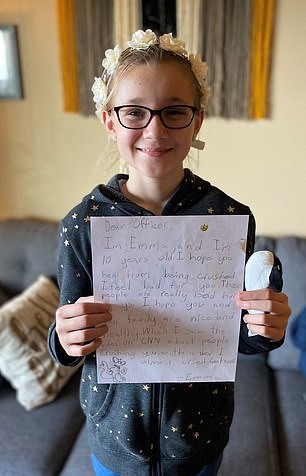 Dear Officer
I'm Emma and I'm
10 years old. I hope you
heal from being crushed
I feel bad for you Those
people are really bad but
I hope you and
family are nice and
healthy. When I saw the
on CNN about people
crushing you with a door I
almost cried. Get well
-Emma